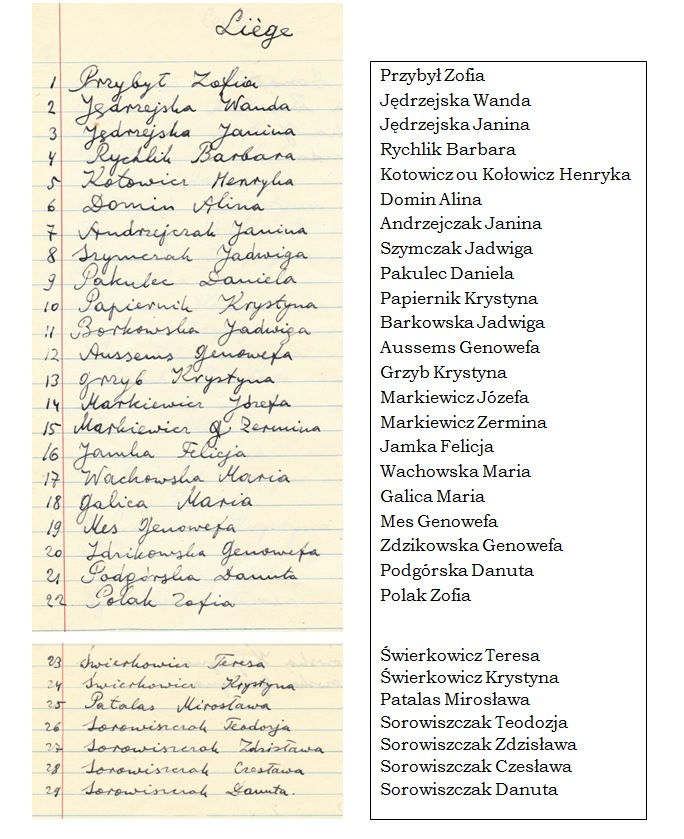 Liège
1 Przybył Zofia
2 Jędrzejska Wanda
3 Jędrzejska Janina
4 Rychlik Barbara
5 Kotowicz Henryka
6 Domin Alina
7 Andrzejczak Janina
8 Szymczak Jadwiga
9 Pakulec Daniela
10 Papiernik Krystyna
11 Borkowska Jadwiga
12 Aussems Genowefa
13 Grzyb Krystyna
14 Markiewicz Józefa
15 Markiewicz Zermina
16 Jamka Felicja
17 Wachowska Maria
18 Galica Maria
19 Mes Genowefa
20 Genowefa
21 Podgórska Danuta
22 Polak Zofia
23 Świerkowicz Teresa
24 Świerkowicz Krystyna
25 Patalas Mirosława
26 Sorowiszczak Teodozja
27 Sorowiszczak Zdzisława
28 Sorowiszczak Czesława
29 Sorowiszczak Danuta.
Przybył Zofia
Jędrzejska Wanda
Jędrzejska Janina
Rychlik Barbara
Kotowicz ou Kołowicz Henryka
Domin Alina
Andrzejczak Janina
Szymczak Jadwiga
Pakulec Daniela
Papiernik Krystyna
Barkowska Jadwiga
Aussems Genowefa
Grzyb Krystyna
Markiewicz Józefa
Markiewicz Zermina
Jamka Felicja
Wachowska Maria
Galica Maria
Mes Genowefa
Zdzikowska Genowefa
Podgórska Danuta
Polak Zofia
Świerkowicz Teresa
Świerkowicz Krystyna
Patalas Mirosława
Sorowiszczak Teodozja
Sorowiszczak Zdzisława
Sorowiszczak Czesława
Sorowiszczak Danuta